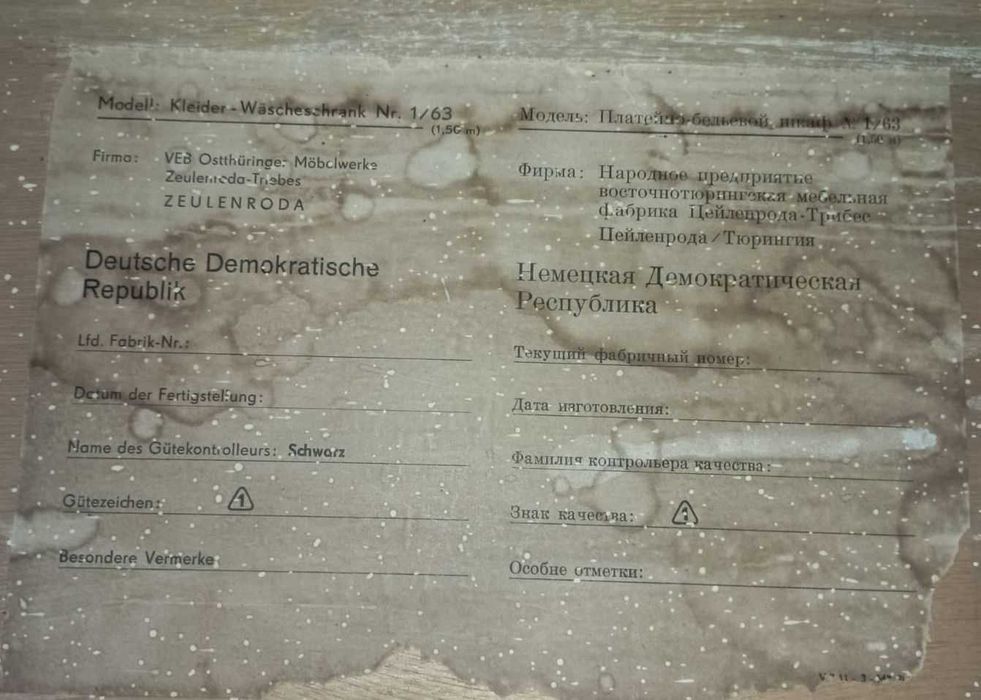 Modell: Kleider-Wäscheschrank Nr. 1/63
(1,50 m)
Firma: VEB Ostthüringer Möbelwerke
Zeulenroda-Triebes
ZEULENRODA
Deutsche Demokratische
Republik
Lfd. Fabrik-Nr.:
Datum der Fertigstellung:
Name des Gütekontrolleurs: Schwarz
Gütezeichen: 1
Besondere Vermerke
Модель: Платейно-бельевой шкаф № 1/63
(1,50 м)
Фирма: Народное предприятие
восточнотюрингская мебельная
фабрика Цейленрода-Трибес
Цейленрода/Тюрингия
Немецкая Демократическая
Республика
Текущий фабричный номер:
Дата изготовления:
Фамилия контрольера качества:
Знак качества: 1
Особне отметки: